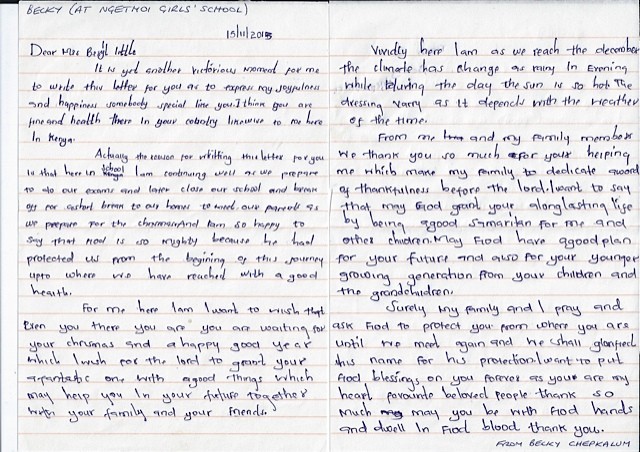 BECKY (AT NGETMOI GIRLS' SCHOOL)
15/11/2015
Dear Mrs Beryl little
It is yet another victorious moment for me
to write this letter for you as to express my joyfulness
and happiness somebody special like you. I think you are
fine and health there in your country likewise to me here
In Kenya.
Actually the reason for writting this letter for you
is that here in school Kenya I am continuing well as we prepare
to do our exams and later close our school and break
off for ashort break to our homes to meet our parents as
we prepare for the chrismas and Iam so happy to
say that how is so mighty because he had
protected us from the begining of this journey
upto where we have reached with a good
health.
For me here Iam I want to wish that
Even you there you are you are waiting for
your chrismas and a happy good year
which I wish for the lord to grant your
afantastic one with agood things which
may help you In your future together
with your family and your friends.
Vividly here Iam as we reach the december
the climate has change as rainy In Evening
while during the day the sun is so hot The
dressing vary as It depends with the weather
of the time.
From me and my family members
we thank you so much for your helping
me which make my family to dedicate aword
of thankfulness before the lord. I want to say
that may God grant your alonglasting life
by being agood samaritan for me and
other children. May God have agood plan
for your future and also for your younger
growing generation from your children and
the grandchildren.
Surely My family and I pray and
ask God to protect you from where you are
until we meet again and he shall glorified
this name for his protection. I want to put
God blessings on you forever as your are my
heart favourite beloved people thank so
much may you be with God hands
and dwell In God blood thank you.
FROM BECKY CHEPKALUM